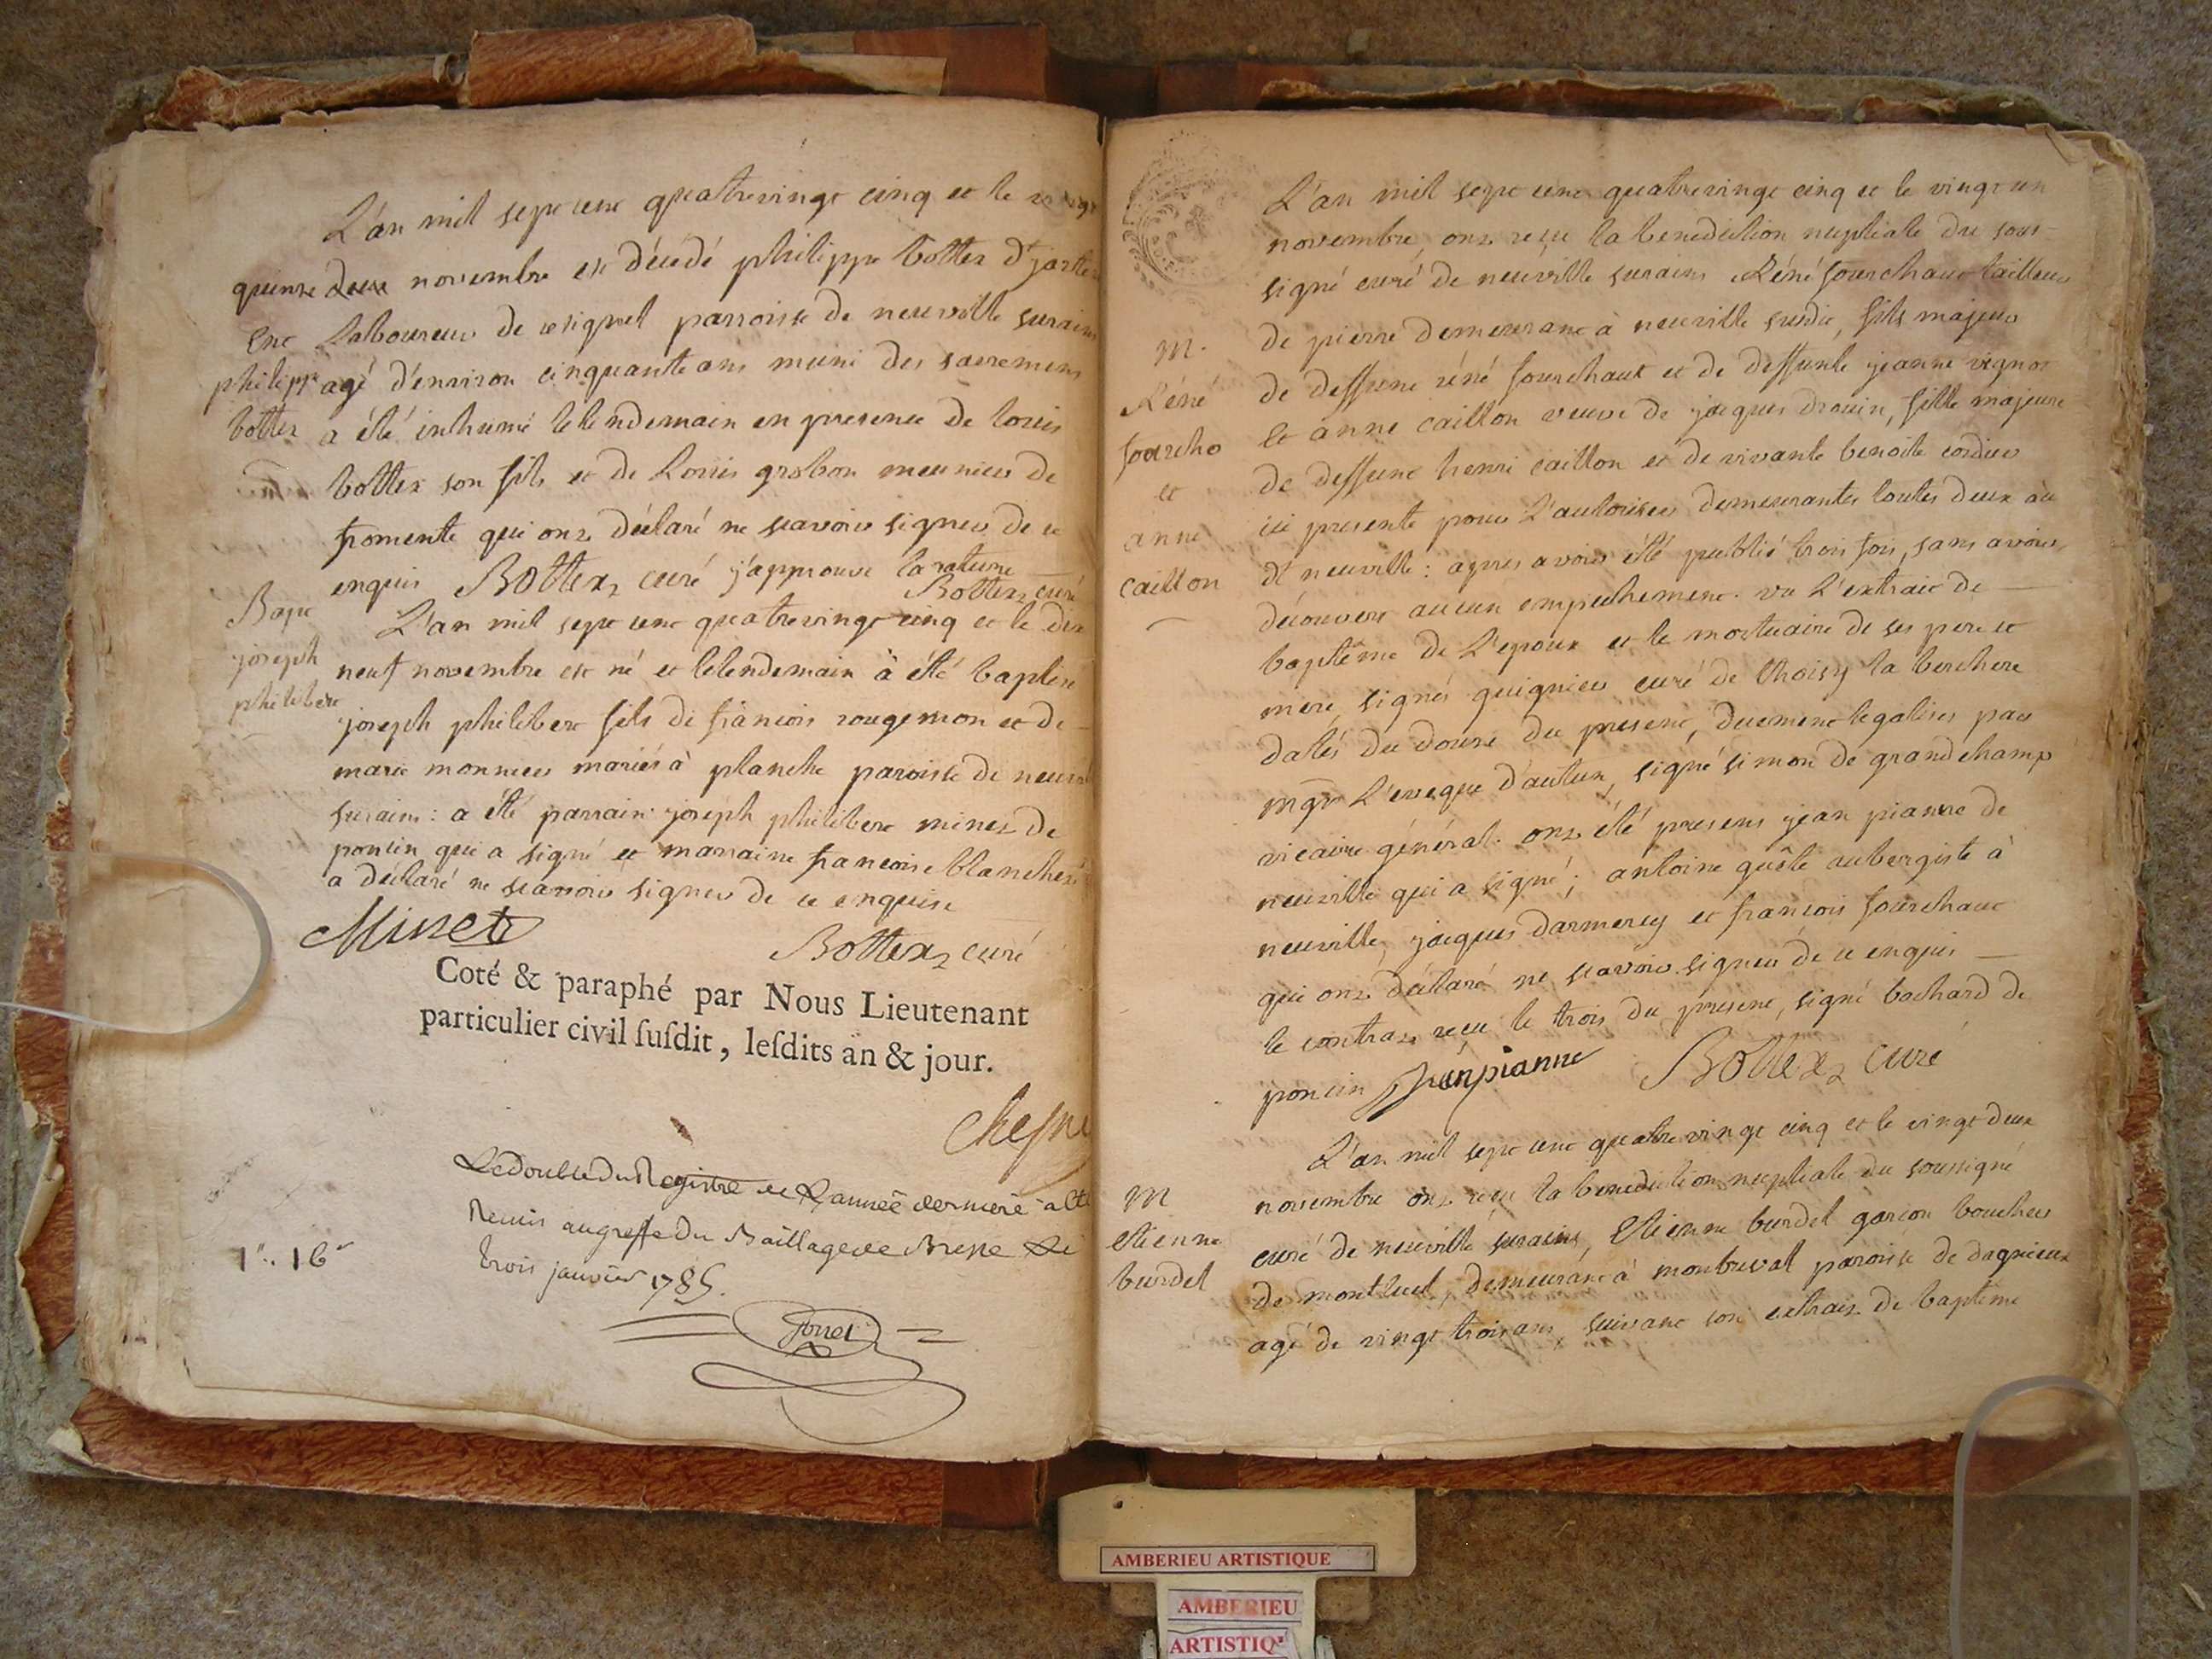 L'an mil sept cent quatrevingt cinq et le
quinze deux novembre est décédé philippe bottex
Laboureur de resignel parroisse de neuville surain
agé d'environ cinquante ans muni des sacremens
a été inhumé lelendemain en presence de louis
bottex son fils et de Louis grobon meunier de
fromente qui ont déclaré ne scavoir signer de ce
enquis Bottex curé j'approuve la rature
Bottex curé
Ent
philippe
bottex
L'an mil sept cent quatrevingt cinq et le dix
neuf novembre est né et lelendemain à été baptisé
joseph philibert fils de françois rougemon et de
marie monnier mariés à planche paroisse de neuvil
surain: a été parrain joseph philibert minet de
poncin qui a signé et marraine françoise blanchet
a déclaré ne scavoir signer de ce enquise
Bapt
joseph
philibert
Minet
Bottex curé
Coté & paraphé par Nous Lieutenant
particulier civil ſuſdit, leſdits an & jour.
Chesne
Le double du Registre de L'année derniere a ete
Remis au greffe du Baillage de Bresse Le
trois janvier 1785.
L'an mil sept cent quatrevingt cinq et le vingt un
novembre ont reçu la benediction nuptiale du sous-
signé curé de neuville surain Réné fourchaut tailleur
de pierre demeurant à neuville susdit, fils majeur
de deffunt réné fourchaut et de deffunte jeanne vignot
et anne caillon veuve de jacques drouin, fille majeure
de deffunt henri caillon et de vivante benoite cordier
ici presente pour l'autoriser demeurantes toutes deux au
dt neuville: apres avoir été publié trois fois, sans avoir
découvert aucun empechement. vu L'extrait de
baptême de L'epoux et le mortuaire de ses pere et
mere signés guignier curé de thoisy la berchere
datés du douze du present, duement legalisés par
mgr L'eveque d'autun, signé simon de grandchamp
vicaire général. ont été presens jean pianne de
neuville qui a signé; antoine guête aubergiste à
neuville, jacques darmercy et françois fourchaut
qui ont déclaré ne scavoir signer de ce enquis
le contrat reçu le trois du present, signé bochard de
poncin Jean pianne Bottex curé
M.
Réné
fourcho
et
anne
caillon
L'an mil sept cent quatre vingt cinq et le vingt deux
novembre ont reçu la benediction nuptiale du soussigné
curé de neuville surain, Etienne burdel garcon boucher
de montluel, demeurant à montreval paroisse de dagnieux
agé de vingt trois ans suivant son extrait de baptême
M
etienne
burdel
AMBERIEU ARTISTIQUE
AMBERIEU
ARTISTIQ